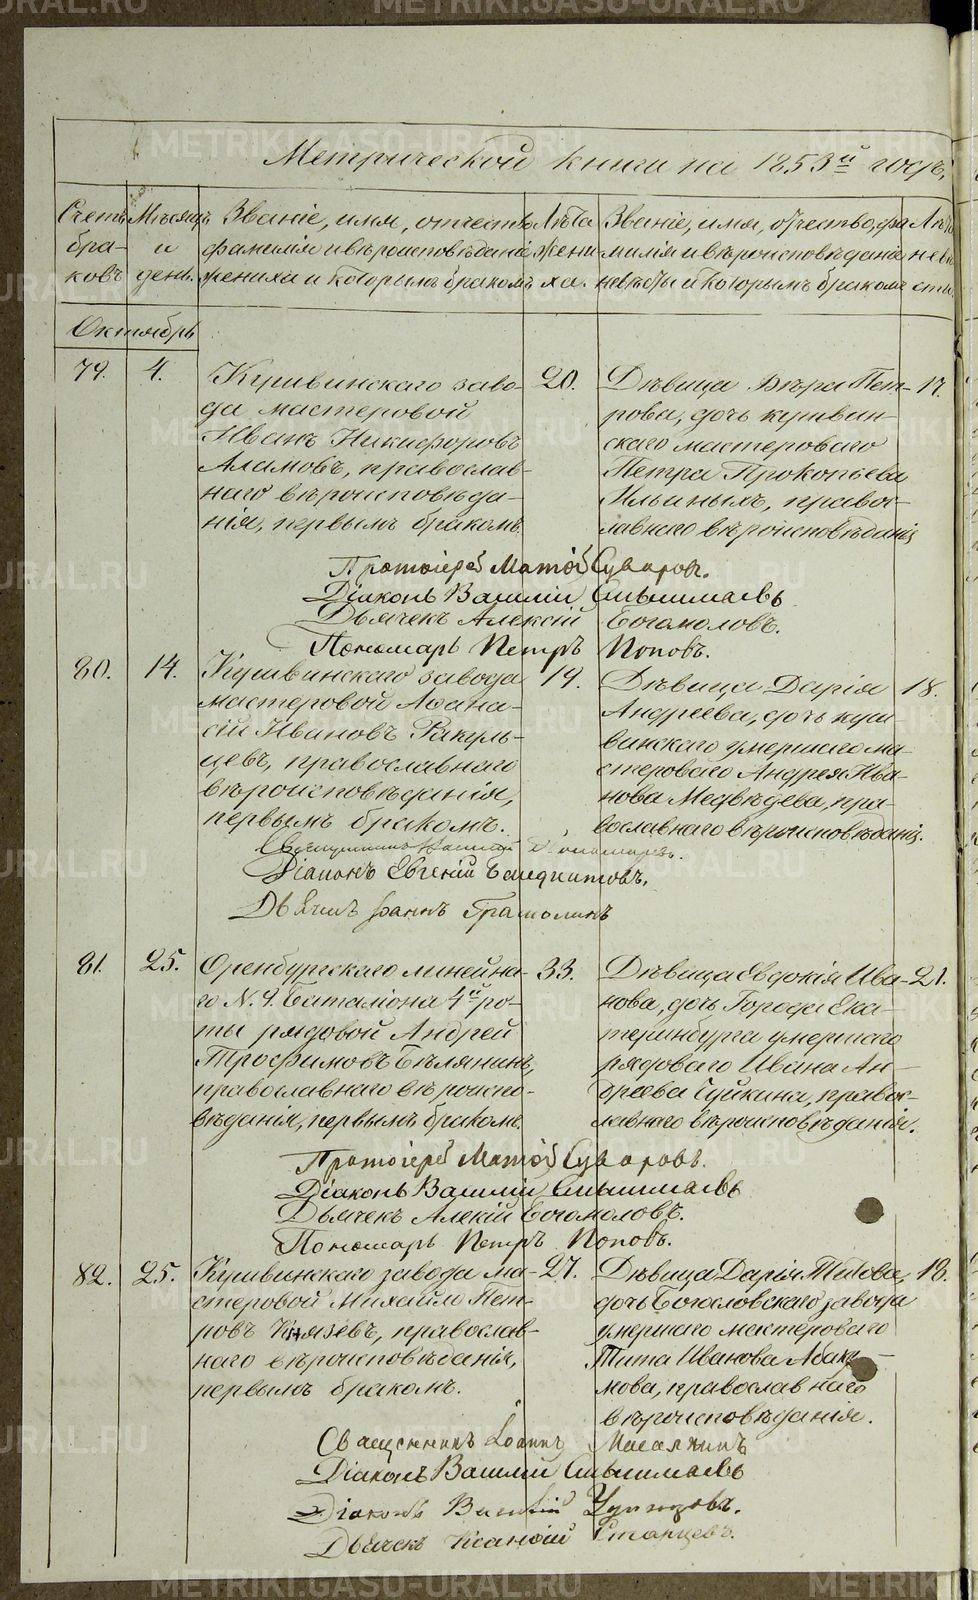 METRIKI.GASO-URAL.RU
Метрической книги на 1853й годъ,
Счетъ бра- ковъ
Мѣсяцъ и день.
Званіе, имя, отчество, фамилія и вѣроисповѣданіе жениха и которымъ бракомъ
Лѣта жени- ха.
Званіе, имя, отчество, фа- милія и вѣроисповѣданіе невѣсты и которымъ бракомъ
Лѣта невѣ- сты
Октябрь
79. 4. Кушвинскаго заво- 20.
да мастеровой
Иванъ Никифоровъ
православ-
наго вѣроисповѣда-
нія, первымъ бракомъ.
Дѣвица Вѣра Пет- 17.
рова, дочь кушвин-
скаго мастероваго
Петра Прокопьева
Ильиныхъ, правос-
лавнаго вѣроисповѣданія
Протоіерей Матѳій Суворовъ.
Діаконъ Василій
Дьячекъ Алексій Богомоловъ.
Пономарь Петръ Поповъ.
80. 14. Кушвинскаго завода 19.
мастеровой Аѳана-
сій Ивановъ Ракуль-
цевъ, православнаго
вѣроисповѣданія,
первымъ бракомъ.
Дѣвица Дарія 18.
Андреева, дочь куш-
винскаго умершаго ма-
стероваго Андрея Ива-
нова Медвѣдева, пра-
вославнаго вѣроисповѣданія.
Діаконъ Евгеній
Дьячекъ Іоаннъ
81. 25. Оренбургскаго линейна- 33.
го N. 9. Баталіона 4й ро-
ты рядовой Андрей
Трофимовъ Бѣлянинъ,
православнаго вѣроиспо-
вѣданія, первымъ бракомъ.
Дѣвица Евдокія Ива- 21.
нова, дочь Города Ека-
теринбурга умершаго
рядоваго Ивана Ан-
дреева Чуйкина, правос-
лавнаго вѣроисповѣданія.
Протоіерей Матѳій Суворовъ.
Діаконъ Василій
Дьячекъ Алексій Богомоловъ.
Пономарь Петръ Поповъ.
82. 25. Кушвинскаго завода ма- 27.
стеровой Михайло Пет-
ровъ Князевъ, православ-
наго вѣроисповѣданія,
первымъ бракомъ.
Дѣвица Дарія Титова, 18.
дочь Богословскаго завода
умершаго мастероваго
Тита Иванова Абаку-
мова, православнаго
вѣроисповѣданія.
Священникъ Іоаннъ
Діаконъ Василій
Діаконъ
Дьячекъ Старцевъ.
METRIKI.GASO-URAL.RU